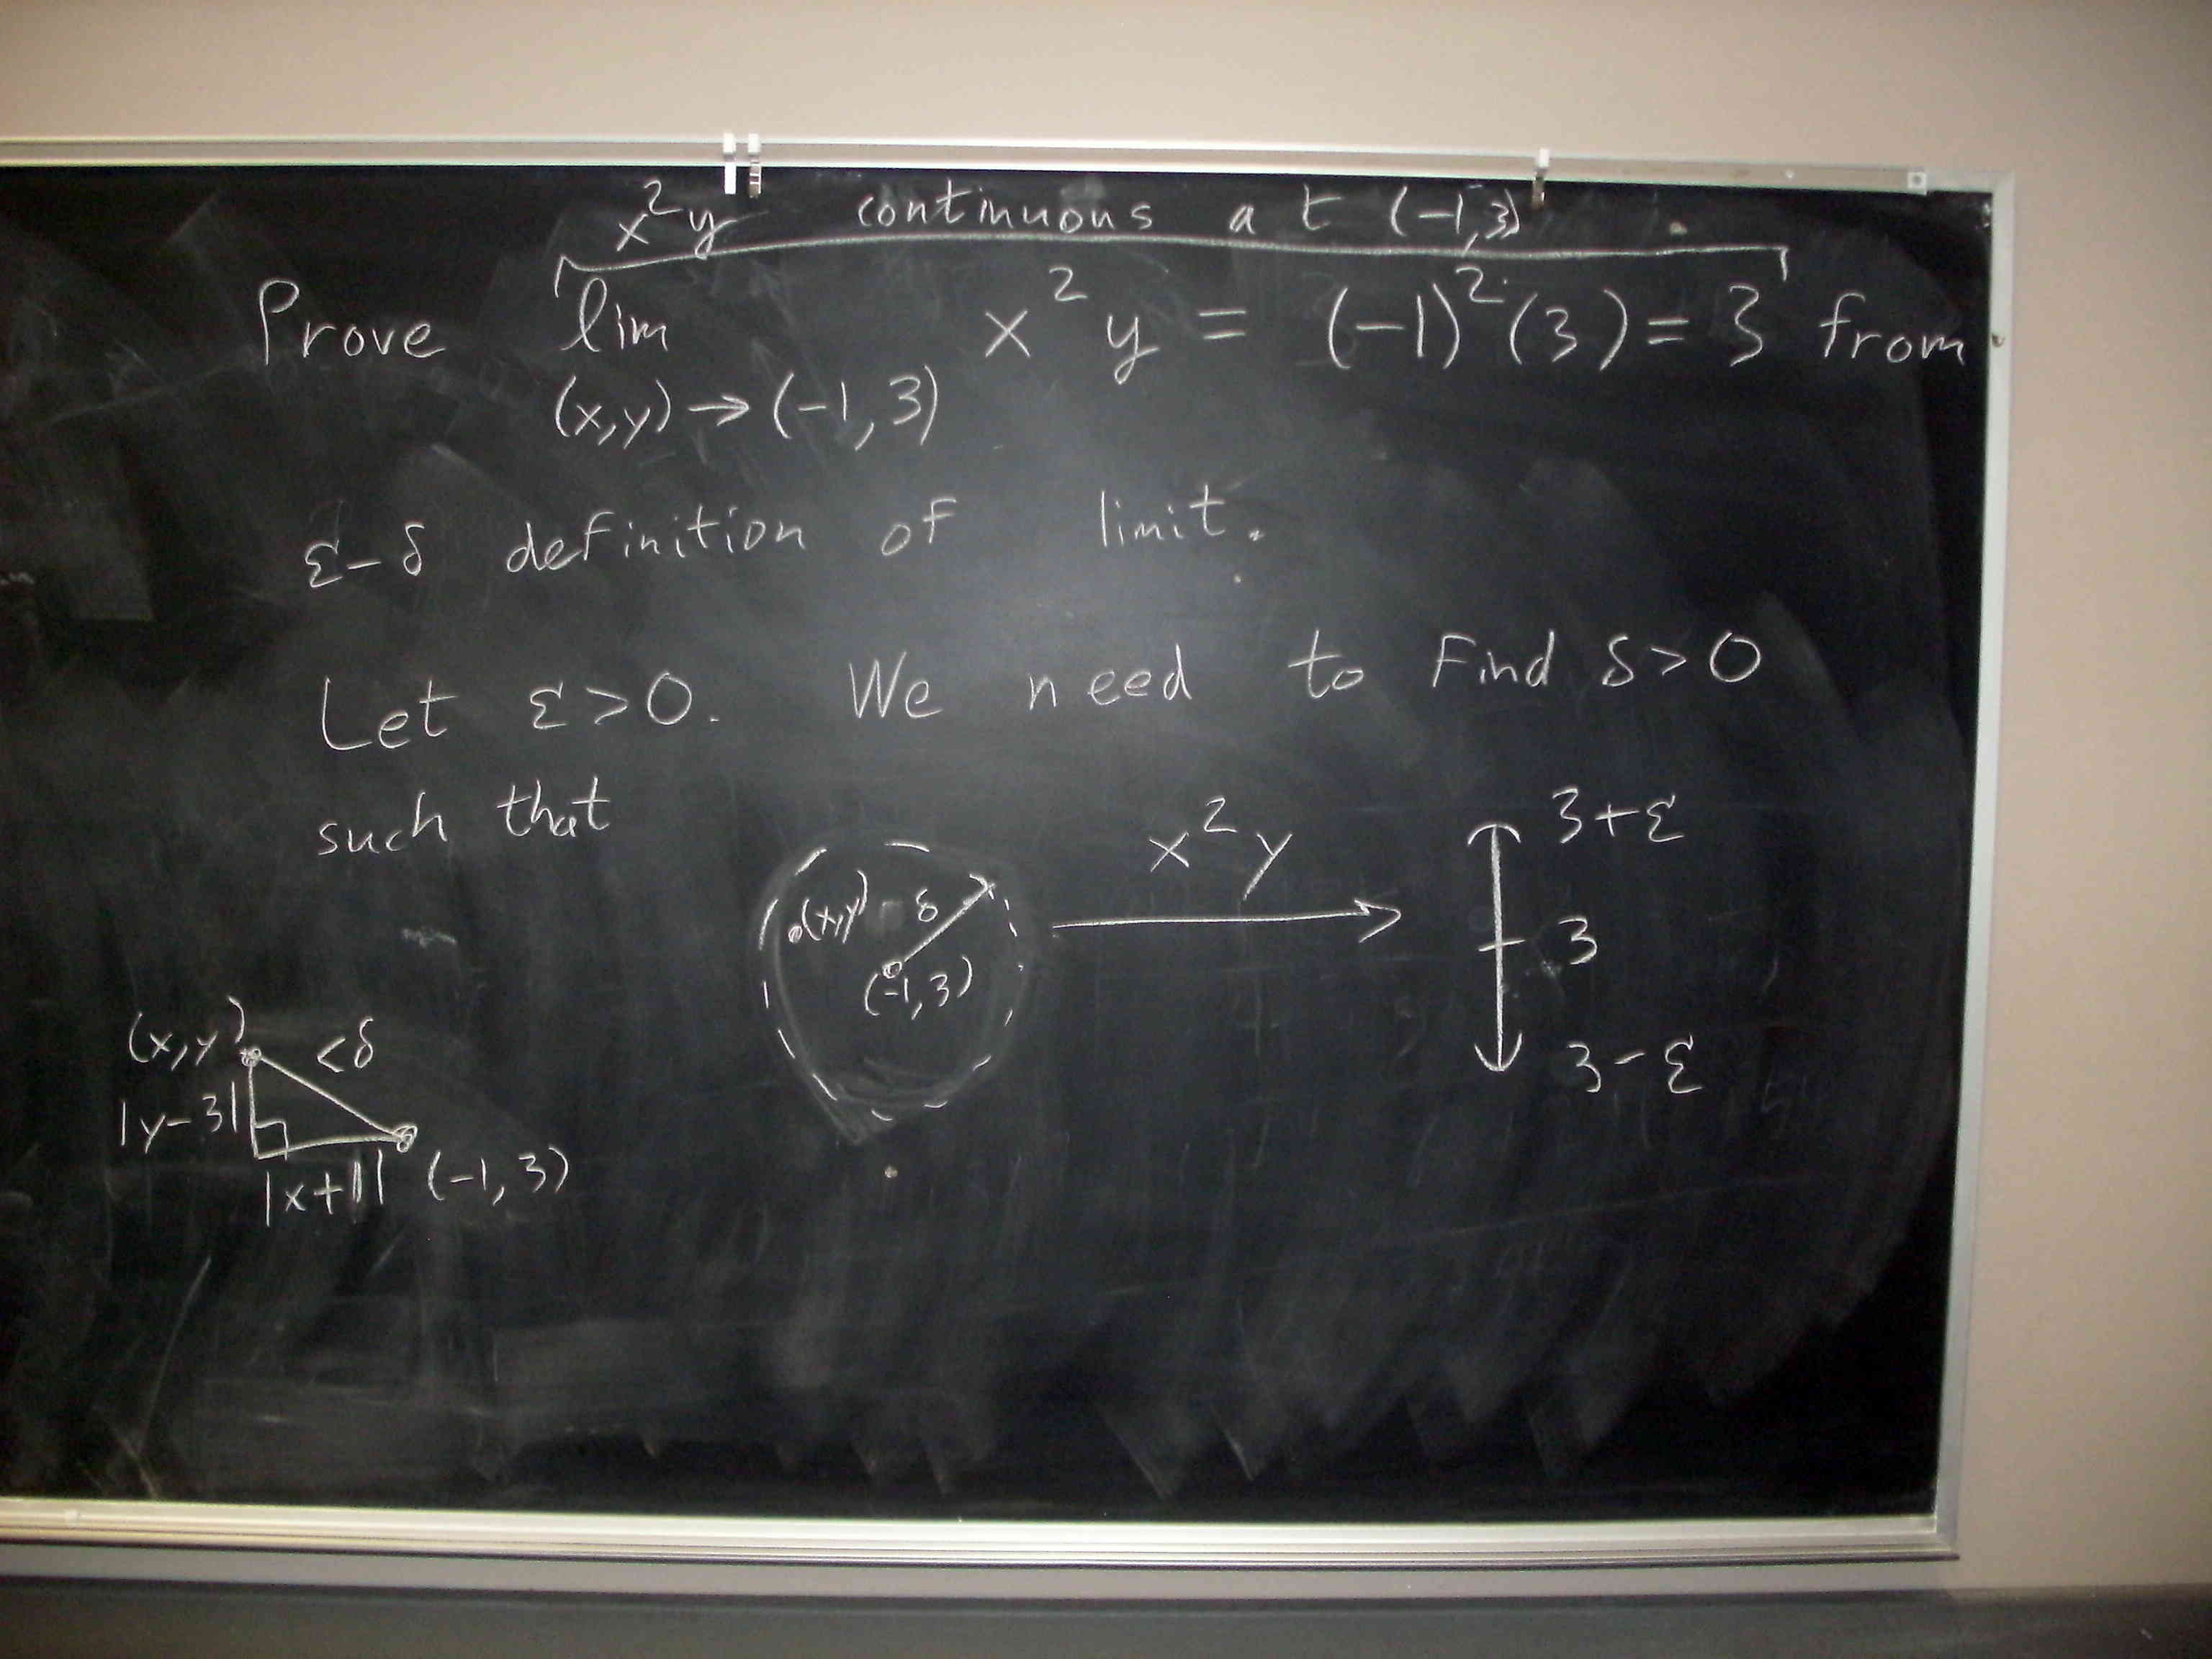 x²y continuous at (-1,3)
Prove lim x²y = (-1)²(3) = 3 from
(x,y) → (-1,3)
ε-δ definition of limit.
Let ε>0. We need to find δ>0
such that
x²y
3+ε
(x,y) δ
3
(-1,3)
3-ε
(x,y) <δ
|y-3|
|x+1| (-1,3)